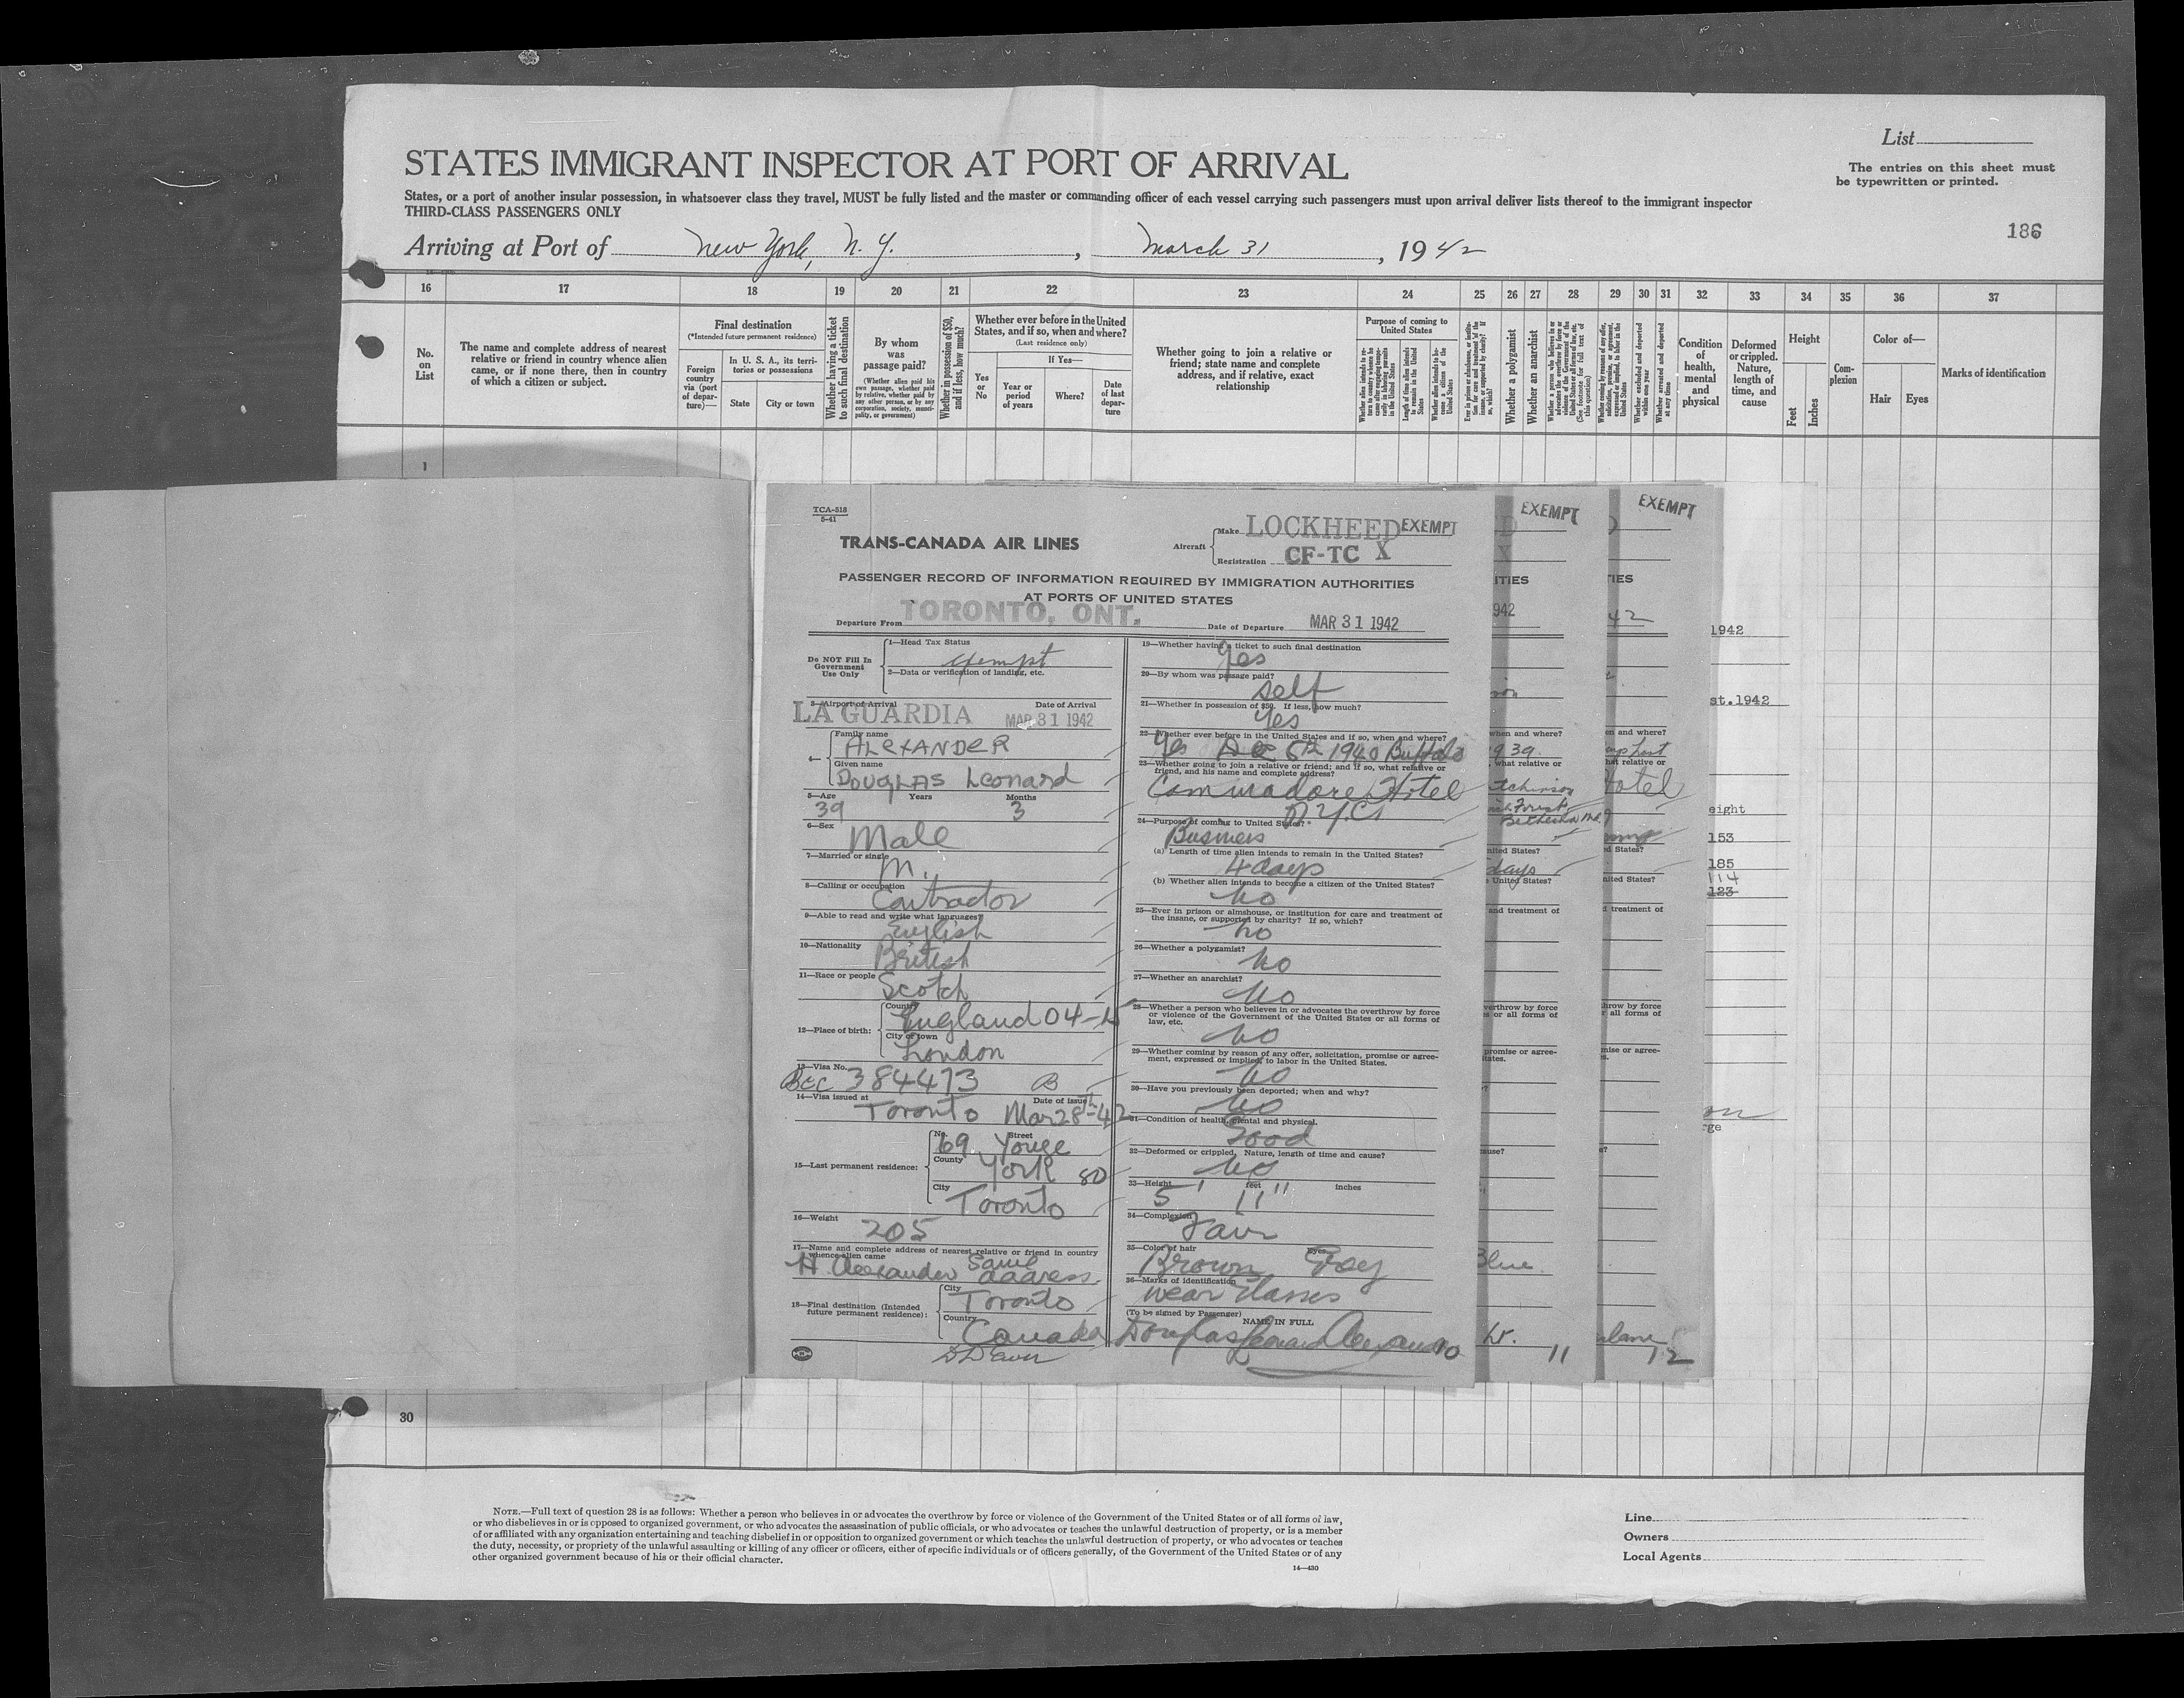 List
The entries on this sheet must
be typewritten or printed.
STATES IMMIGRANT INSPECTOR AT PORT OF ARRIVAL
States, or a port of another insular possession, in whatsoever class they travel, MUST be fully listed and the master or commanding officer of each vessel carrying such passengers must upon arrival deliver lists thereof to the immigrant inspector
THIRD-CLASS PASSENGERS ONLY
186
Arriving at Port of New York, N. Y., March 31, 1942
16 17 18 19 20 21 22 23 24 25 26 27 28 29 30 31 32 33 34 35 36 37
No. on List
The name and complete address of nearest
relative or friend in country whence alien
came, or if none there, then in country
of which a citizen or subject.
Final destination
(*Intended future permanent residence)
Foreign
country
via (port
of depar-
ture)—
In U. S. A., its terri-
tories or possessions
State City or town
Whether having a ticket
to such final destination
By whom
was
passage paid?
(Whether alien paid his
own passage, whether paid
by relative, whether paid by
any other person, or by any
corporation, society, munici-
pality, or government)
Whether in possession of $50,
and if less, how much?
Whether ever before in the United
States, and if so, when and where?
(Last residence only)
Yes
or
No
If Yes—
Year or
period
of years
Where?
Date
of last
depar-
ture
Whether going to join a relative or
friend; state name and complete
address, and if relative, exact
relationship
Purpose of coming to
United States
Whether a polygamist
Whether an anarchist
Whether excluded and deported
within one year
Whether arrested and deported
at any time
Condition
of
health,
mental
and
physical
Deformed
or crippled.
Nature,
length of
time, and
cause
Height
Feet
Inches
Com-
plexion
Color of—
Hair Eyes
Marks of identification
1
TCA-518
5-41
TRANS-CANADA AIR LINES
Aircraft
Make LOCKHEED EXEMPT
Registration CF-TC X
PASSENGER RECORD OF INFORMATION REQUIRED BY IMMIGRATION AUTHORITIES
AT PORTS OF UNITED STATES
Departure From TORONTO, ONT. Date of Departure MAR 31 1942
Do NOT Fill In
Government
Use Only
1—Head Tax Status
exempt
2—Data or verification of landing, etc.
3—Airport of Arrival Date of Arrival
LA GUARDIA MAR 31 1942
4— Family name
ALEXANDER
Given name
DOUGLAS Leonard
5—Age Years Months
39 3
6—Sex
Male
7—Married or single
M.
8—Calling or occupation
Contractor
9—Able to read and write what languages?
English
10—Nationality
British
11—Race or people
Scotch
12—Place of birth:
Country
England 04-15
City or town
London
13—Visa No.
Bcc 384473 B
14—Visa issued at Date of issue
Toronto Mar 28-42
15—Last permanent residence:
No. Street
69 Yonge
County
York 80
City
Toronto
16—Weight
205
17—Name and complete address of nearest relative or friend in country
whence alien came
H. Alexander Same address
18—Final destination (Intended
future permanent residence):
City
Toronto
Country
Canada
19—Whether having a ticket to such final destination
Yes
20—By whom was passage paid?
self
21—Whether in possession of $50. If less, how much?
Yes
22—Whether ever before in the United States and if so, when and where?
Yes Dec 5th 1940 Buffalo
23—Whether going to join a relative or friend; and if so, what relative or
friend, and his name and complete address?
Commadore Hotel
N.Y.C.
24—Purpose of coming to United States?
Business
(a) Length of time alien intends to remain in the United States?
4 days
(b) Whether alien intends to become a citizen of the United States?
no
25—Ever in prison or almshouse, or institution for care and treatment of
the insane, or supported by charity? If so, which?
no
26—Whether a polygamist?
no
27—Whether an anarchist?
no
28—Whether a person who believes in or advocates the overthrow by force
or violence of the Government of the United States or all forms of
law, etc.
no
29—Whether coming by reason of any offer, solicitation, promise or agree-
ment, expressed or implied, to labor in the United States.
no
30—Have you previously been deported; when and why?
no
31—Condition of health, mental and physical.
Good
32—Deformed or crippled. Nature, length of time and cause?
no
33—Height feet inches
5' 11"
34—Complexion
Fair
35—Color of hair Eyes
Brown Grey
36—Marks of identification
wear Glasses
(To be signed by Passenger) NAME IN FULL
Douglas Leonard Alexander 10
EXEMPT
ITIES
942
when and where?
939.
what relative or
tchinson
Bethesda Md.
nited States?
days
United States?
and treatment of
verthrow by force
s or all forms of
promise or agree-
tates.
ause?
Blue
11
EXEMPT
TIES
42
en and where?
hat relative or
Hotel
ed States?
nited States?
d treatment of
hrow by force
r all forms of
mise or agree-
s.
e?
12
1942
st.1942
eight
153
185
114
123
on
rge
30
NOTE.—Full text of question 28 is as follows: Whether a person who believes in or advocates the overthrow by force or violence of the Government of the United States or of all forms of law,
or who disbelieves in or is opposed to organized government, or who advocates the assassination of public officials, or who advocates or teaches the unlawful destruction of property, or is a member
of or affiliated with any organization entertaining and teaching disbelief in or opposition to organized government or which teaches the unlawful destruction of property, or who advocates or teaches
the duty, necessity, or propriety of the unlawful assaulting or killing of any officer or officers, either of specific individuals or of officers generally, of the Government of the United States or of any
other organized government because of his or their official character.
14—430
Line
Owners
Local Agents